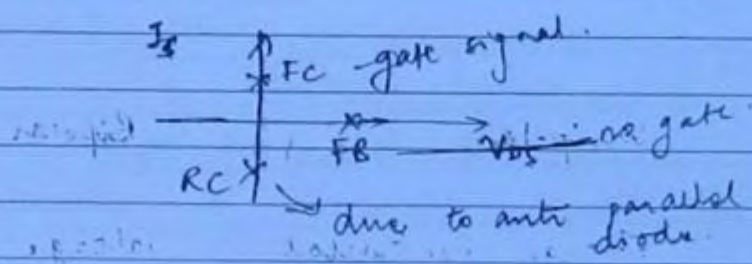 I_s
FC - gate signal.
FB V_DS no gate
RC
due to anti parallel
diode.